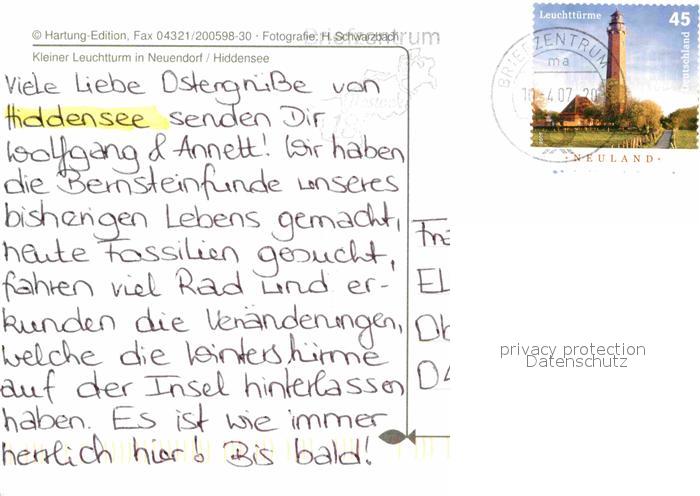 © Hartung-Edition, Fax 04321/200598-30 · Fotografie: H. Schwarzbach
Briefzentrum
Kleiner Leuchtturm in Neuendorf / Hiddensee
Viele Liebe Ostergrüße von
Hiddensee senden Dir
Wolfgang & Annett! Wir haben
die Bernsteinfunde unseres
bisherigen Lebens gemacht,
heute Fossilien gesucht,
fahren viel Rad und er-
kunden die Veränderungen,
welche die Winterstürme
auf der Insel hinterlassen
haben. Es ist wie immer
herrlich hier! Bis bald!
Leuchttürme 45
Deutschland
BRIEFZENTRUM
ma
NEULAND
privacy protection
Datenschutz